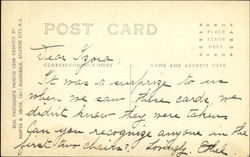 POST CARD
PLACE
STAMP
HERE
CORRESPONDENCE HERE
NAME AND ADDRESS HERE
REAL PHOTOGRAPHS PRINTED FROM NEGATIVE BY
HARPER B. SMITH, 1007 BOARDWALK, ATLANTIC CITY, N.J.
Dear
It was a surprize to us
when we saw these cards, we
didn't know they were taken
Can you recognize anyone in the
first two chairs? Lovingly,